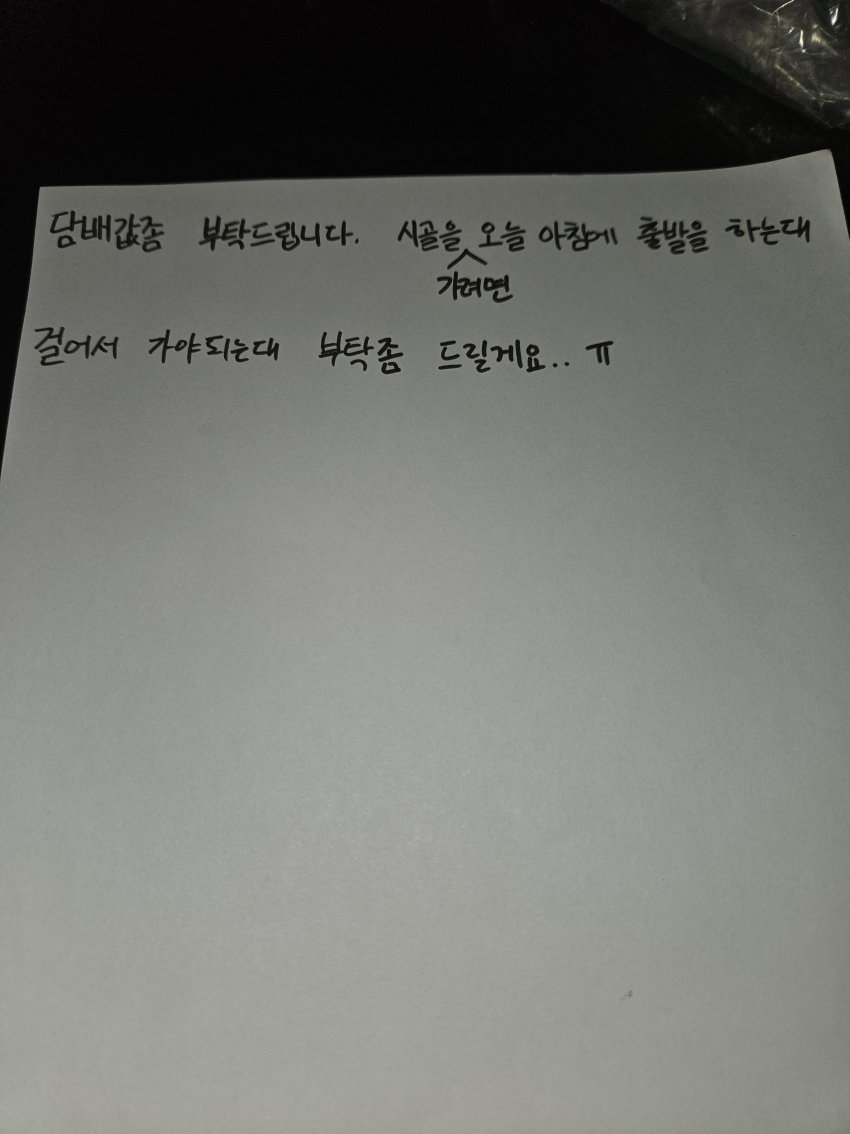 담배값좀 부탁드립니다. 시골을 가려면 오늘 아침에 출발을 하는대
걸어서 가야되는대 부탁좀 드릴게요.. ㅠ